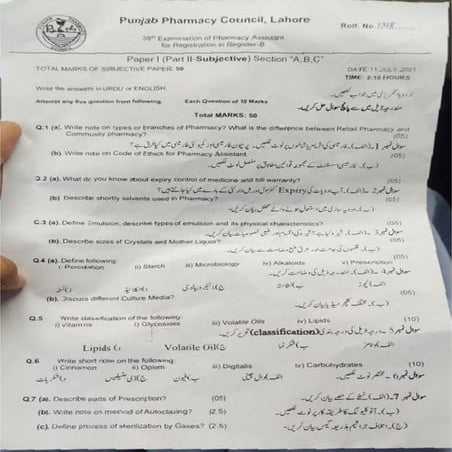 Punjab Pharmacy Council, Lahore
Roll. No. 1328
38th Examination of Pharmacy Assistant
for Registration in Register-B
Paper I (Part II-Subjective) Section "A,B,C"
TOTAL MARKS OF SUBJECTIVE PAPER: 50
DATE:11 JULY, 2021
TIME: 2:10 HOURS
Write the answers in URDU or ENGLISH.
Attempt any five question from following. Each Question of 10 Marks
مندرجہ ذیل میں سے پانچ سوال حل کریں۔
Total MARKS: 50
Q.1 (a). Write note on types or branches of Pharmacy? What is the difference between Retail Pharmacy and
Community pharmacy? (05)
(b). Write note on Code of Ethics for Pharmacy Assistant. (05)
Q.2 (a). What do you know about expiry control of medicine and bill warranty? (05)
سوال نمبر 2۔ (الف)۔ ادویات کی Expiry کنٹرول اور بل وارنٹی کے بارے میں کیا جانتے ہیں؟
(b). Describe shortly solvents used in Pharmacy? (05)
(ب)۔ ادویہ سازی میں استعمال ہونے والے محلل بیان کریں۔
Q.3 (a). Define Emulsion, describe types of emulsion and its physical characteristics? (05)
(b). Describe sizes of Crystals and Mother Liquor? (05)
Q.4 (a). Define following. (05)
i) Percolation ii) Starch iii) Microbiology iv) Alkaloids v) Prescription
(b). Discuss different Culture Media? (05)
(ب)۔ مختلف کلچر میڈیا بیان کریں۔
Q.5 Write classification of the following: (10)
i) Vitamins ii) Glycosides iii) Volatile Oils iv) Lipids
سوال نمبر 5۔ درجہ ذیل کی درجہ بندی (classification) تحریر کریں۔
Lipids Volatile Oil
Q.6 Write short note on the following: (10)
i) Cinnamon ii) Opium iii) Digitalis iv) Carbohydrates
سوال نمبر 6۔ مختصر نوٹ لکھیں۔
Q.7 (a). Describe parts of Prescription? (05)
سوال نمبر 7۔ (الف)۔ نسخے کے حصے بیان کریں۔
(b). Write note on method of Autoclaving? (2.5)
(c). Define process of sterilization by Gases? (2.5)